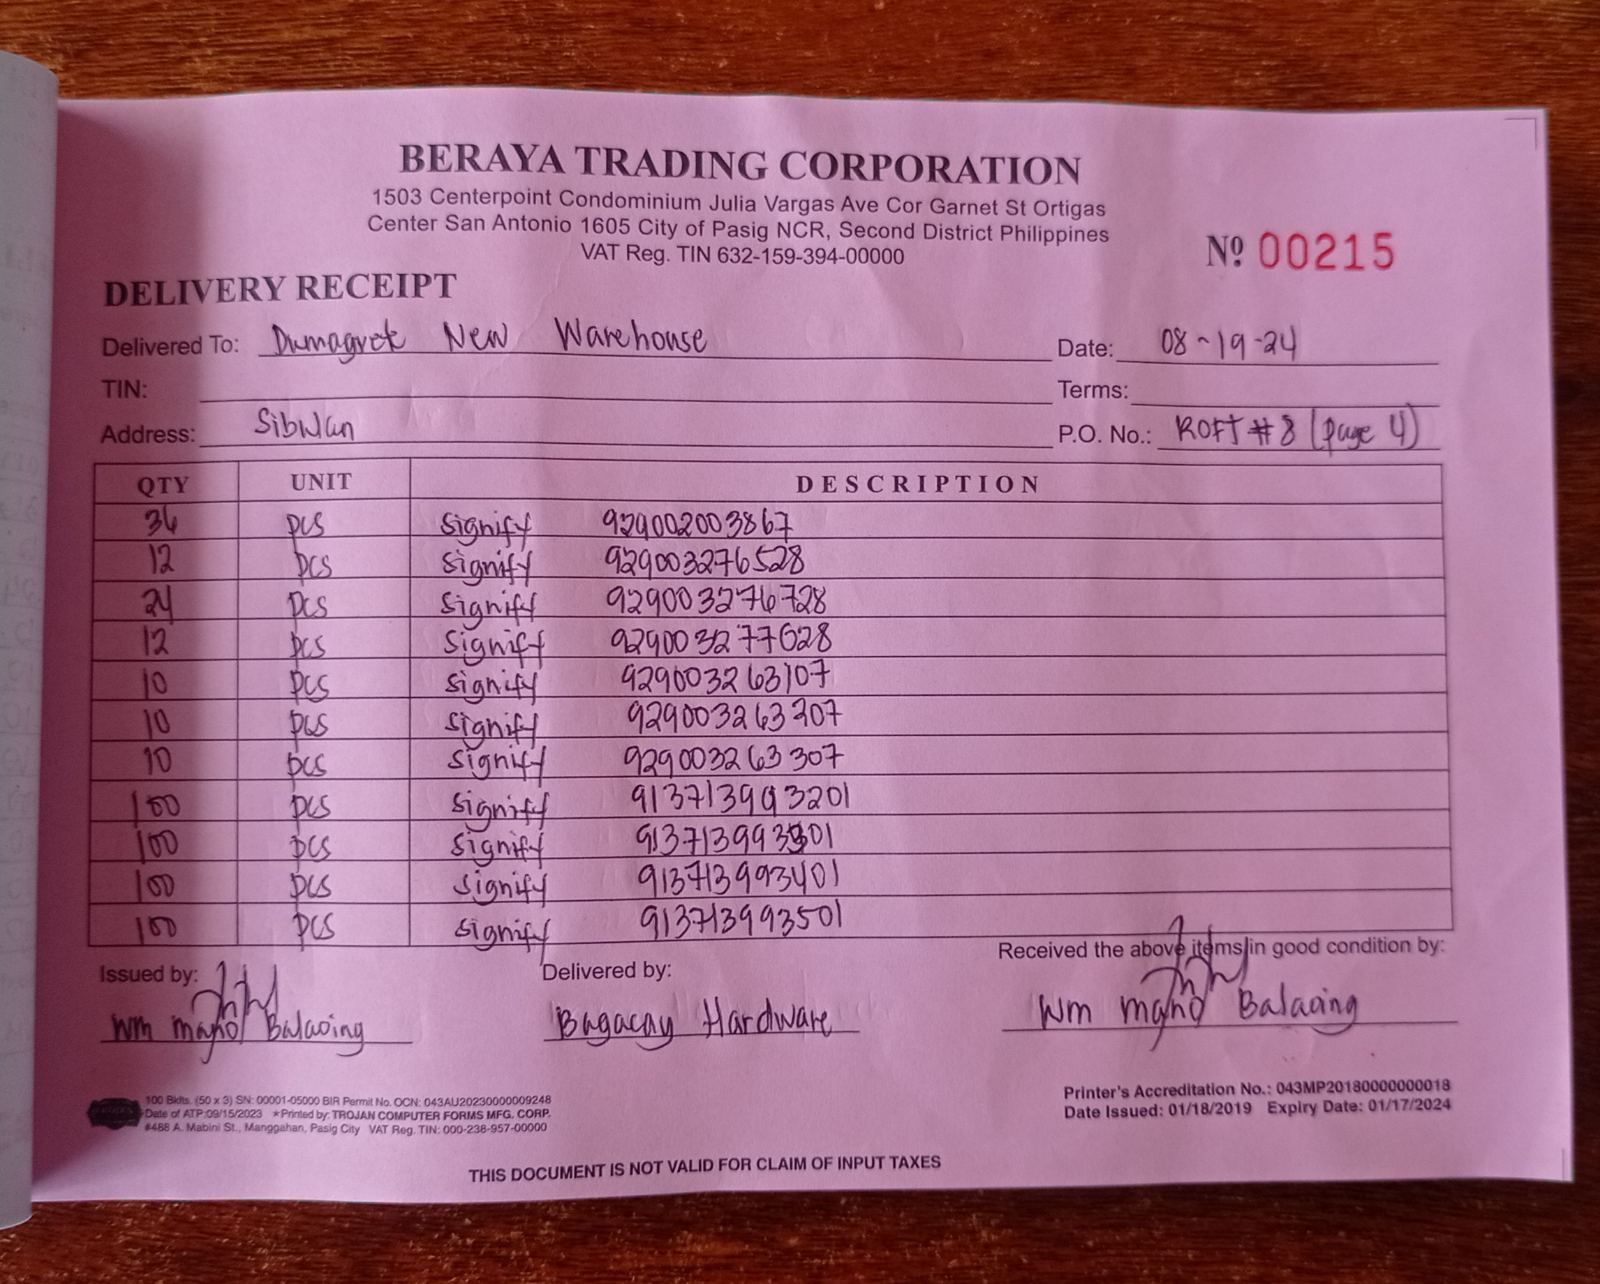 BERAYA TRADING CORPORATION
1503 Centerpoint Condominium Julia Vargas Ave Cor Garnet St Ortigas
Center San Antonio 1605 City of Pasig NCR, Second District Philippines
VAT Reg. TIN 632-159-394-00000
Nº 00215
DELIVERY RECEIPT
Delivered To: Dumaguete New Warehouse Date: 08-19-24
TIN: Terms:
Address: Sibulan P.O. No.: ROFT #8 (page 4)
QTY UNIT DESCRIPTION
36 pcs Signify 929002003867
12 pcs Signify 929003276528
24 pcs Signify 929003276728
12 pcs Signify 929003277028
10 pcs Signify 929003263107
10 pcs Signify 929003263207
10 pcs Signify 929003263307
100 pcs Signify 913713993201
100 pcs Signify 913713993301
100 pcs Signify 913713993401
100 pcs Signify 913713993501
Issued by: Delivered by: Received the above items in good condition by:
Wm Balaoing Bagacay Hardware Wm Balaoing
100 Bklts. (50 x 3) SN: 00001-05000 BIR Permit No. OCN: 043AU20230000009248
Date of ATP:09/15/2023 *Printed by: TROJAN COMPUTER FORMS MFG. CORP.
#488 A. Mabini St., Manggahan, Pasig City VAT Reg. TIN: 000-238-957-00000
Printer's Accreditation No.: 043MP20180000000018
Date Issued: 01/18/2019 Expiry Date: 01/17/2024
THIS DOCUMENT IS NOT VALID FOR CLAIM OF INPUT TAXES